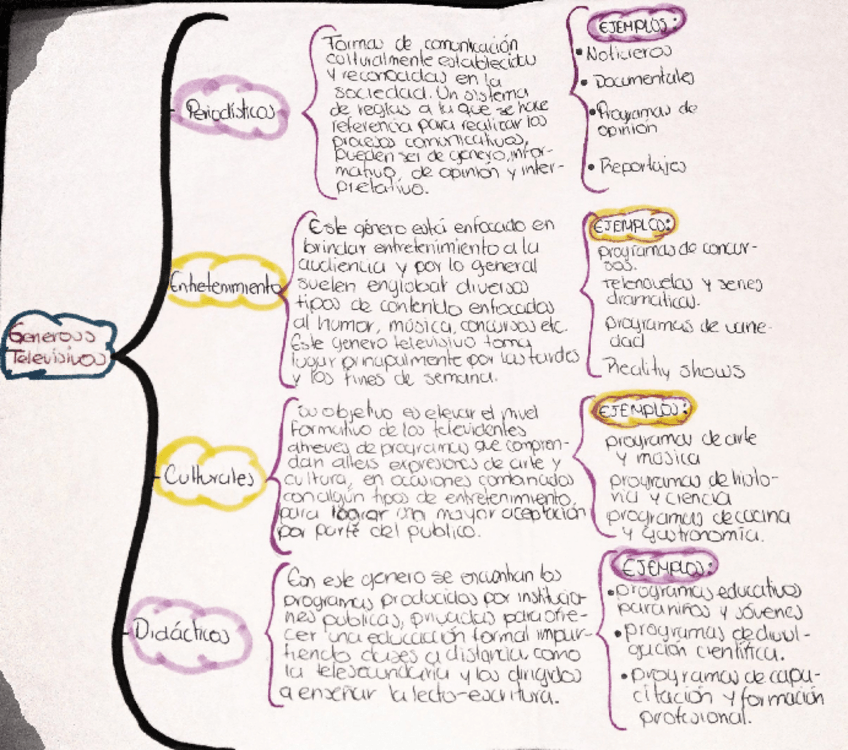 Generoos
Televisivos
Periodísticos
Formas de comunicación
culturalmente establecidas
y reconocidas en la
sociedad. Un sistema
de reglas a la que se hace
referencia para realizar los
procesos comunicativos,
pueden ser de genero, infor-
mativo, de opinión y inter-
pretativo.
EJEMPLOS:
• Noticieros
• Documentales
• Programas de
opinión
• Reportajes
Entretenimiento
Este género está enfocado en
brindar entretenimiento a la
audiencia y por lo general
suelen englobar diversos
tipos de contenido enfocados
al humor, música, concursos etc.
Este genero televisivo toma
lugar principalmente por las tardes
y los fines de semana.
EJEMPLO:
programas de concur-
sos.
telenovelas y series
dramaticas.
programas de varie-
dad
Reality shows
Culturales
su objetivo es elevar el nivel
formativo de los televidentes
atreves de programas que compren-
dan alteis expresiones de arte y
cultura, en ocasiones combinados
con algún tipos de entretenimiento,
para lograr una mayor aceptación
por parte del publico.
EJEMPLOS:
programas de arte
y musica
programas de histo-
ria y ciencia
programas de cocina
y gastronomía.
Didácticos
Con este genero se encuentran los
programas producidos por institucio-
nes publicas, privadas para ofre-
cer una educación formal impar-
tiendo clases a distancia como
la telesecundaria y los dirigidos
a enseñar la lecto-escritura.
EJEMPLOS:
• programas educativos
para niños y jóvenes
• programas de divul-
gación científica.
• programas de capa-
citación y formación
profesional.